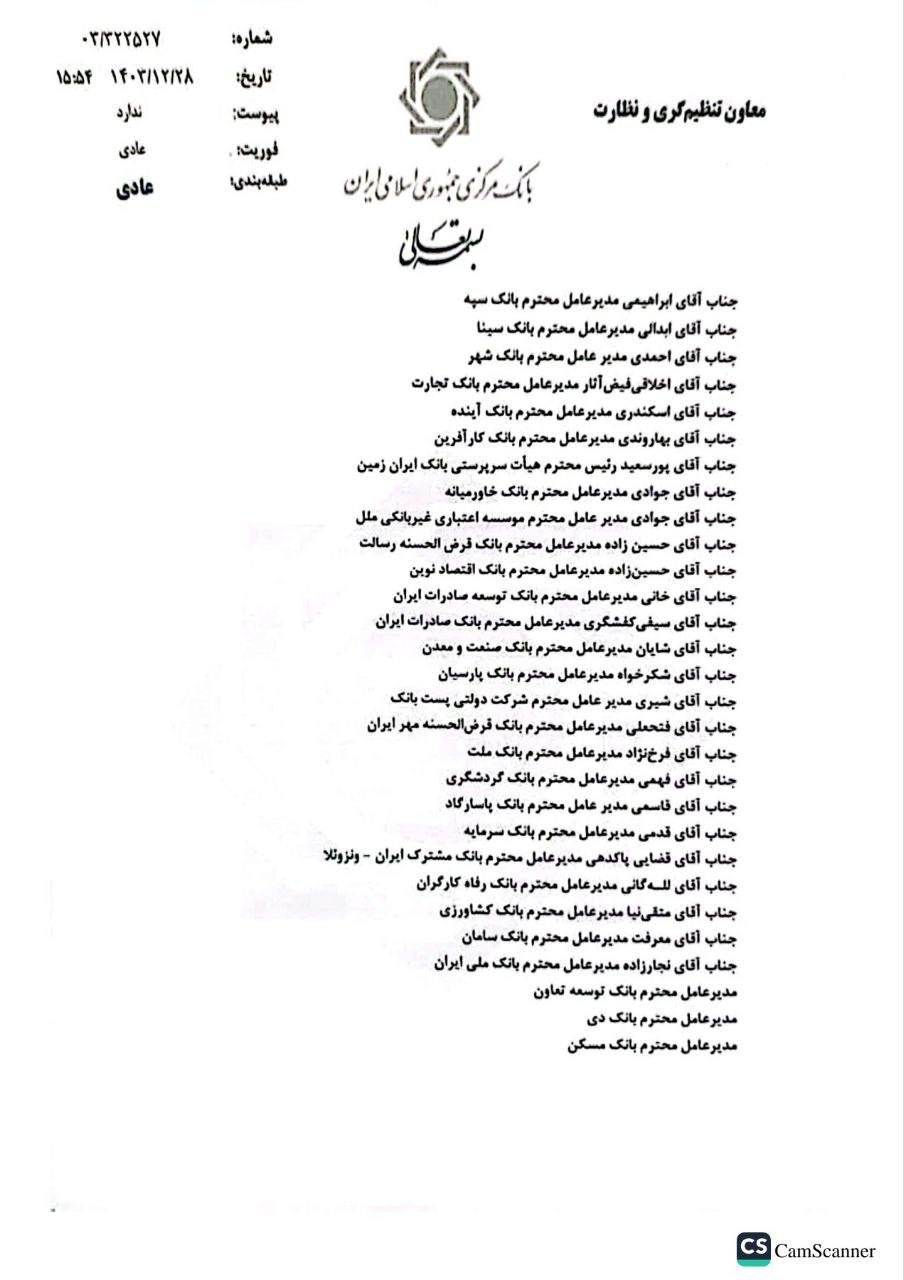 شماره: ۰۳/۳۲۲۵۲۷
تاریخ: ۱۴۰۳/۱۲/۲۸ ۱۵:۵۴
پیوست: ندارد
فوریت: عادی
طبقه‌بندی: عادی
معاون تنظیم‌گری و نظارت
بانک مرکزی جمهوری اسلامی ایران
بسمه تعالی
جناب آقای ابراهیمی مدیرعامل محترم بانک سپه
جناب آقای ابدالی مدیرعامل محترم بانک سینا
جناب آقای احمدی مدیر عامل محترم بانک شهر
جناب آقای اخلاقی‌فیض‌آثار مدیرعامل محترم بانک تجارت
جناب آقای اسکندری مدیرعامل محترم بانک آینده
جناب آقای بهاروندی مدیرعامل محترم بانک کارآفرین
جناب آقای پورسعید رئیس محترم هیأت سرپرستی بانک ایران زمین
جناب آقای جوادی مدیرعامل محترم بانک خاورمیانه
جناب آقای جوادی مدیر عامل محترم موسسه اعتباری غیربانکی ملل
جناب آقای حسین زاده مدیرعامل محترم بانک قرض الحسنه رسالت
جناب آقای حسین‌زاده مدیرعامل محترم بانک اقتصاد نوین
جناب آقای خانی مدیرعامل محترم بانک توسعه صادرات ایران
جناب آقای سیفی‌کفشگری مدیرعامل محترم بانک صادرات ایران
جناب آقای شایان مدیرعامل محترم بانک صنعت و معدن
جناب آقای شکرخواه مدیرعامل محترم بانک پارسیان
جناب آقای شیری مدیر عامل محترم شرکت دولتی پست بانک
جناب آقای فتحعلی مدیرعامل محترم بانک قرض‌الحسنه مهر ایران
جناب آقای فرخ‌نژاد مدیرعامل محترم بانک ملت
جناب آقای فهمی مدیرعامل محترم بانک گردشگری
جناب آقای قاسمی مدیر عامل محترم بانک پاسارگاد
جناب آقای قدمی مدیرعامل محترم بانک سرمایه
جناب آقای قضایی پاکدهی مدیرعامل محترم بانک مشترک ایران - ونزوئلا
جناب آقای لله‌گانی مدیرعامل محترم بانک رفاه کارگران
جناب آقای متقی‌نیا مدیرعامل محترم بانک کشاورزی
جناب آقای معرفت مدیرعامل محترم بانک سامان
جناب آقای نجارزاده مدیرعامل محترم بانک ملی ایران
مدیرعامل محترم بانک توسعه تعاون
مدیرعامل محترم بانک دی
مدیرعامل محترم بانک مسکن
CS CamScanner